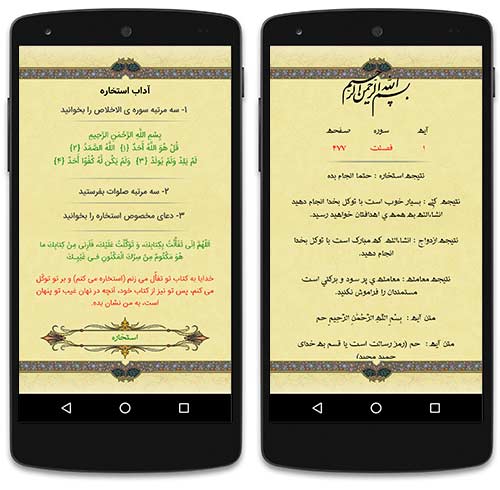 آداب استخاره
۱- سه مرتبه سوره ی الاخلاص را بخوانید
بِسْمِ اللَّهِ الرَّحْمَنِ الرَّحِيمِ
قُلْ هُوَ اللَّهُ أَحَدٌ {۱} اللَّهُ الصَّمَدُ {۲}
لَمْ يَلِدْ وَلَمْ يُولَدْ {۳} وَلَمْ يَكُن لَّهُ كُفُوًا أَحَدٌ {۴}
۲- سه مرتبه صلوات بفرستید
۳- دعای مخصوص استخاره را بخوانید
اَللّهُمَّ اِنّي تَفَأَّلْتُ بِكِتابِكَ، وَ تَوَكَّلْتُ عَلَيْكَ، فَاَرِني مِنْ كِتابِكَ ما
هُوَ مَكْتُومٌ مِنْ سِرِّكَ الْمَكْنُونِ في غَيْبِكَ
خدایا به کتاب تو تفأّل می زنم (استخاره می کنم) و بر تو توکّل
می کنم، پس تو نیز از کتاب خود، آنچه در نهان غیب تو پنهان
است، به من نشان بده.
استخاره
بسم الله الرحمن الرحیم
آیه سوره صفحه
۱ فصلت ۴۷۷
نتیجه استخاره : حتما انجام بده
نتیجه کلی : بسیار خوب است با توکل بخدا انجام دهید
انشاالله به همه ی اهدافتان خواهید رسید.
نتیجه ازدواج : انشاالله که مبارک است با توکل بخدا
انجام دهید.
نتیجه معامله : معامله ی پر سود و برکتی است
مستمندان را فراموش نکنید.
متن آیه : بِسْمِ اللَّهِ الرَّحْمَٰنِ الرَّحِيمِ حم
متن آیه : حم (رمز رسالت است یا قسم به خدای
حمید مجید)